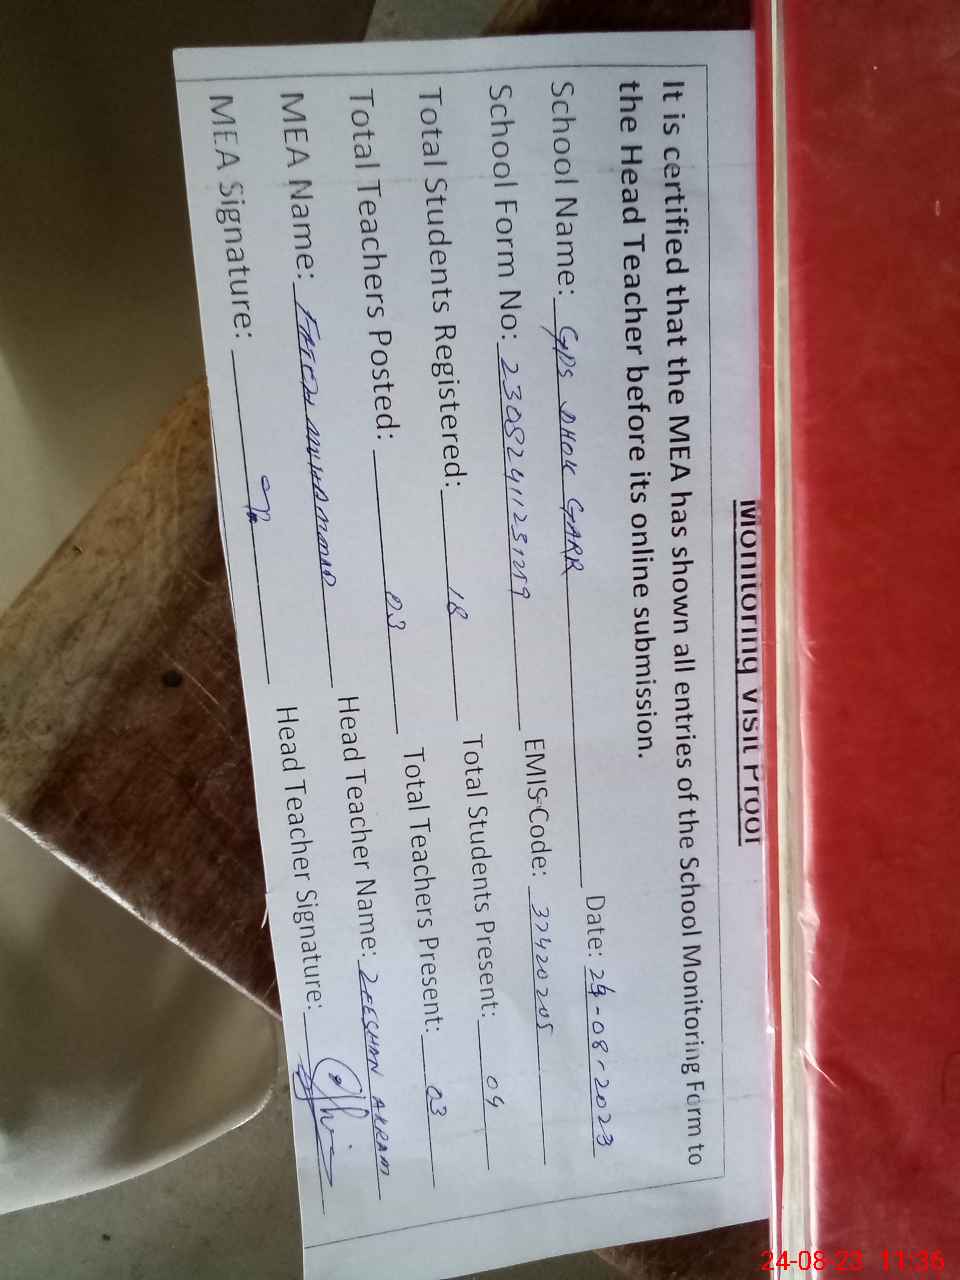 Monitoring Visit Proof
It is certified that the MEA has shown all entries of the School Monitoring Form to
the Head Teacher before its online submission.
School Name: GPS DHOK GARR Date: 24-08-2023
School Form No: 23082411251219 EMIS Code: 37420205
Total Students Registered: 18 Total Students Present: 09
Total Teachers Posted: 03 Total Teachers Present: 03
MEA Name: FATEH MUHAMMAD Head Teacher Name: ZEESHAN AKRAM
MEA Signature: Head Teacher Signature:
24-08-23 11:36